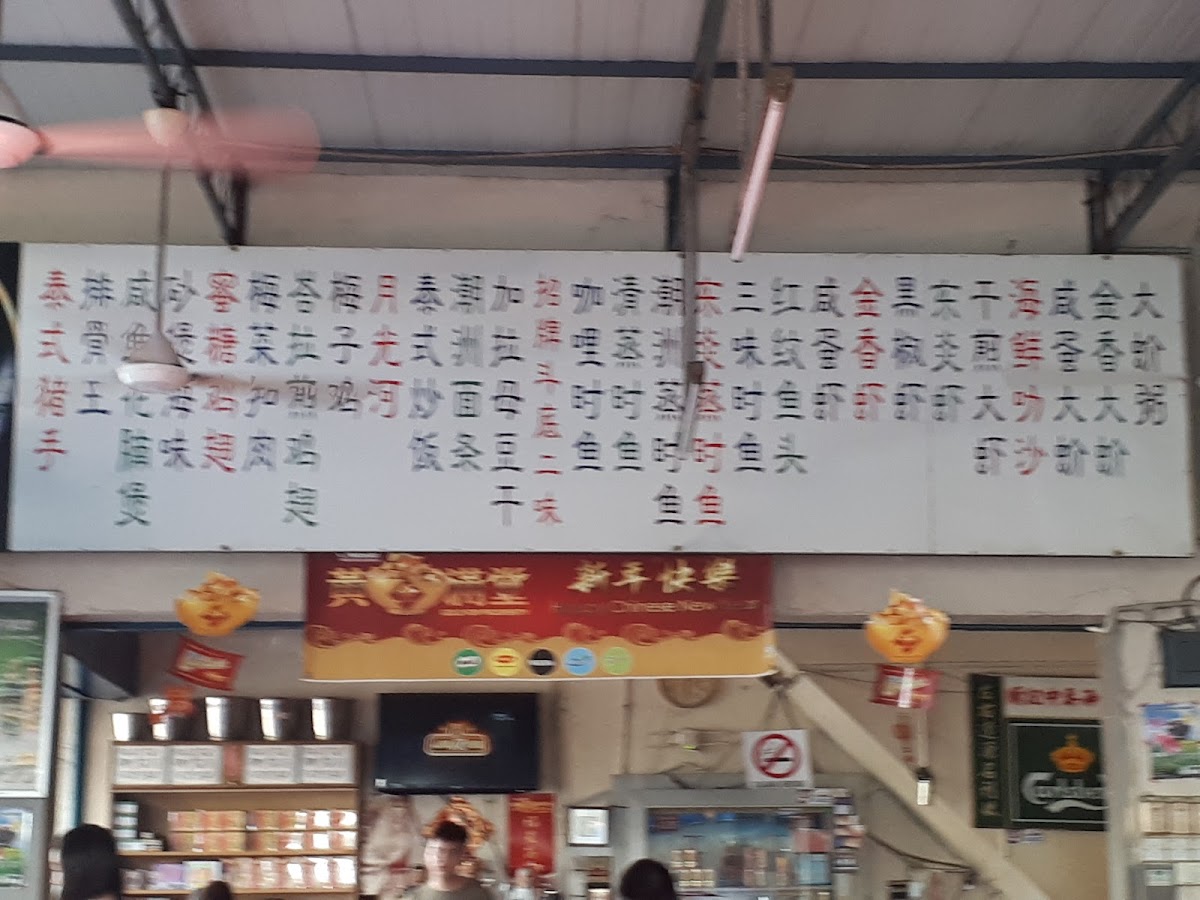 泰式猪手
排骨王
砂煲海味
蜜糖鸡翅
梅菜扣肉
峇拉煎鸡翅
梅子鸡
月先河
泰式炒饭
潮洲面条
加拉母豆干
招牌斗底二味
咖哩时鱼
清蒸时鱼
潮洲蒸时鱼
东炎蒸时鱼
三味时鱼
红纹鱼头
咸蛋虾
金香虾
黑椒虾
东炎虾
干煎大虾
海鲜叻沙
咸蛋大蚧
金香大蚧
大蚧粥
新年快樂
Happy Chinese New Year
Carlsberg